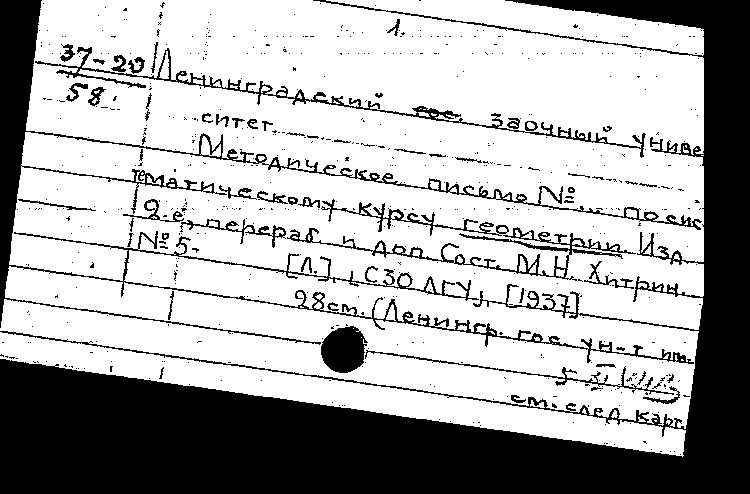 1.
37-20 Ленинградский гос. заочный униве
58.
ситет
Методическое письмо № ... по сис
тематическому курсу геометрии Изд.
2-е, перераб. и доп. Сост. М.Н. Хитрин.
№5. [Л.], СЗО ЛГУ, [1937]
28см. (Ленингр. гос. ун-т им.
5 XI
см. след карт.